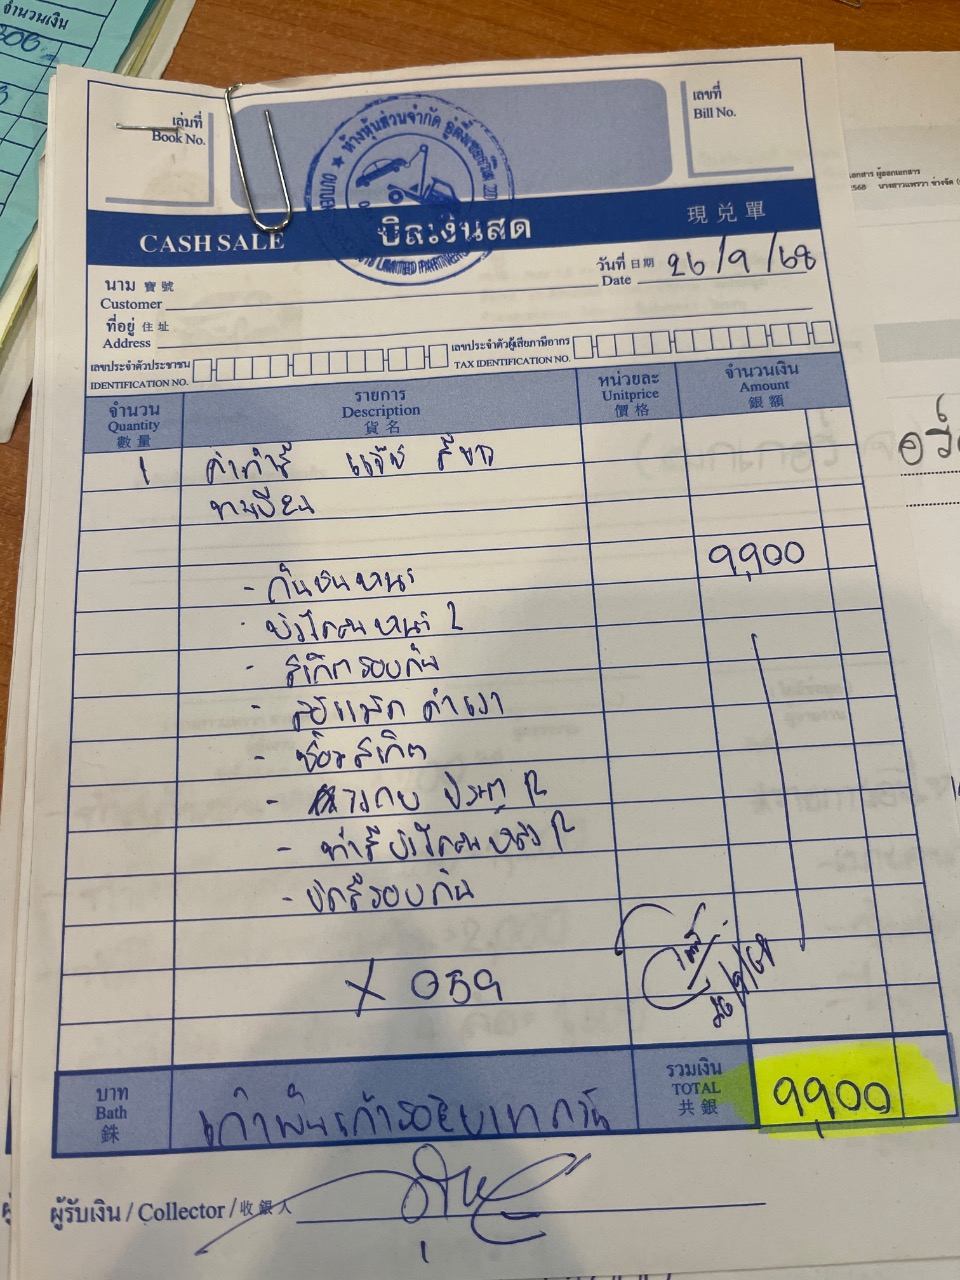 จำนวนเงิน
เล่มที่
Book No.
เลขที่
Bill No.
ห้างหุ้นส่วนจำกัด
LIMITED PARTNERSHIP
CASH SALE บิลเงินสด 現兌單
วันที่ 日期 26/9/68
Date
นาม 寶號
Customer
ที่อยู่ 住址
Address
เลขประจำตัวประชาชน
IDENTIFICATION NO.
เลขประจำตัวผู้เสียภาษีอากร
TAX IDENTIFICATION NO.
จำนวน รายการ หน่วยละ จำนวนเงิน
Quantity Description Unitprice Amount
數量 貨名 價格 銀額
1 ค่าทำสี สีขาว
ทะเบียน
- กันชนหน้า 9,900
- บังโคลนหน้า 2
- สเกิตรอบคัน
- ดำเงา
- ซ่อมสเกิต
- ประตู
- ทำสีบังโคลนหลัง 2
- ขัดสีรอบคัน
26/9/68
บาท
Bath
銖
เก้าพันเก้าร้อยบาทถ้วน
รวมเงิน
TOTAL
共銀
9,900
ผู้รับเงิน / Collector / 收銀人